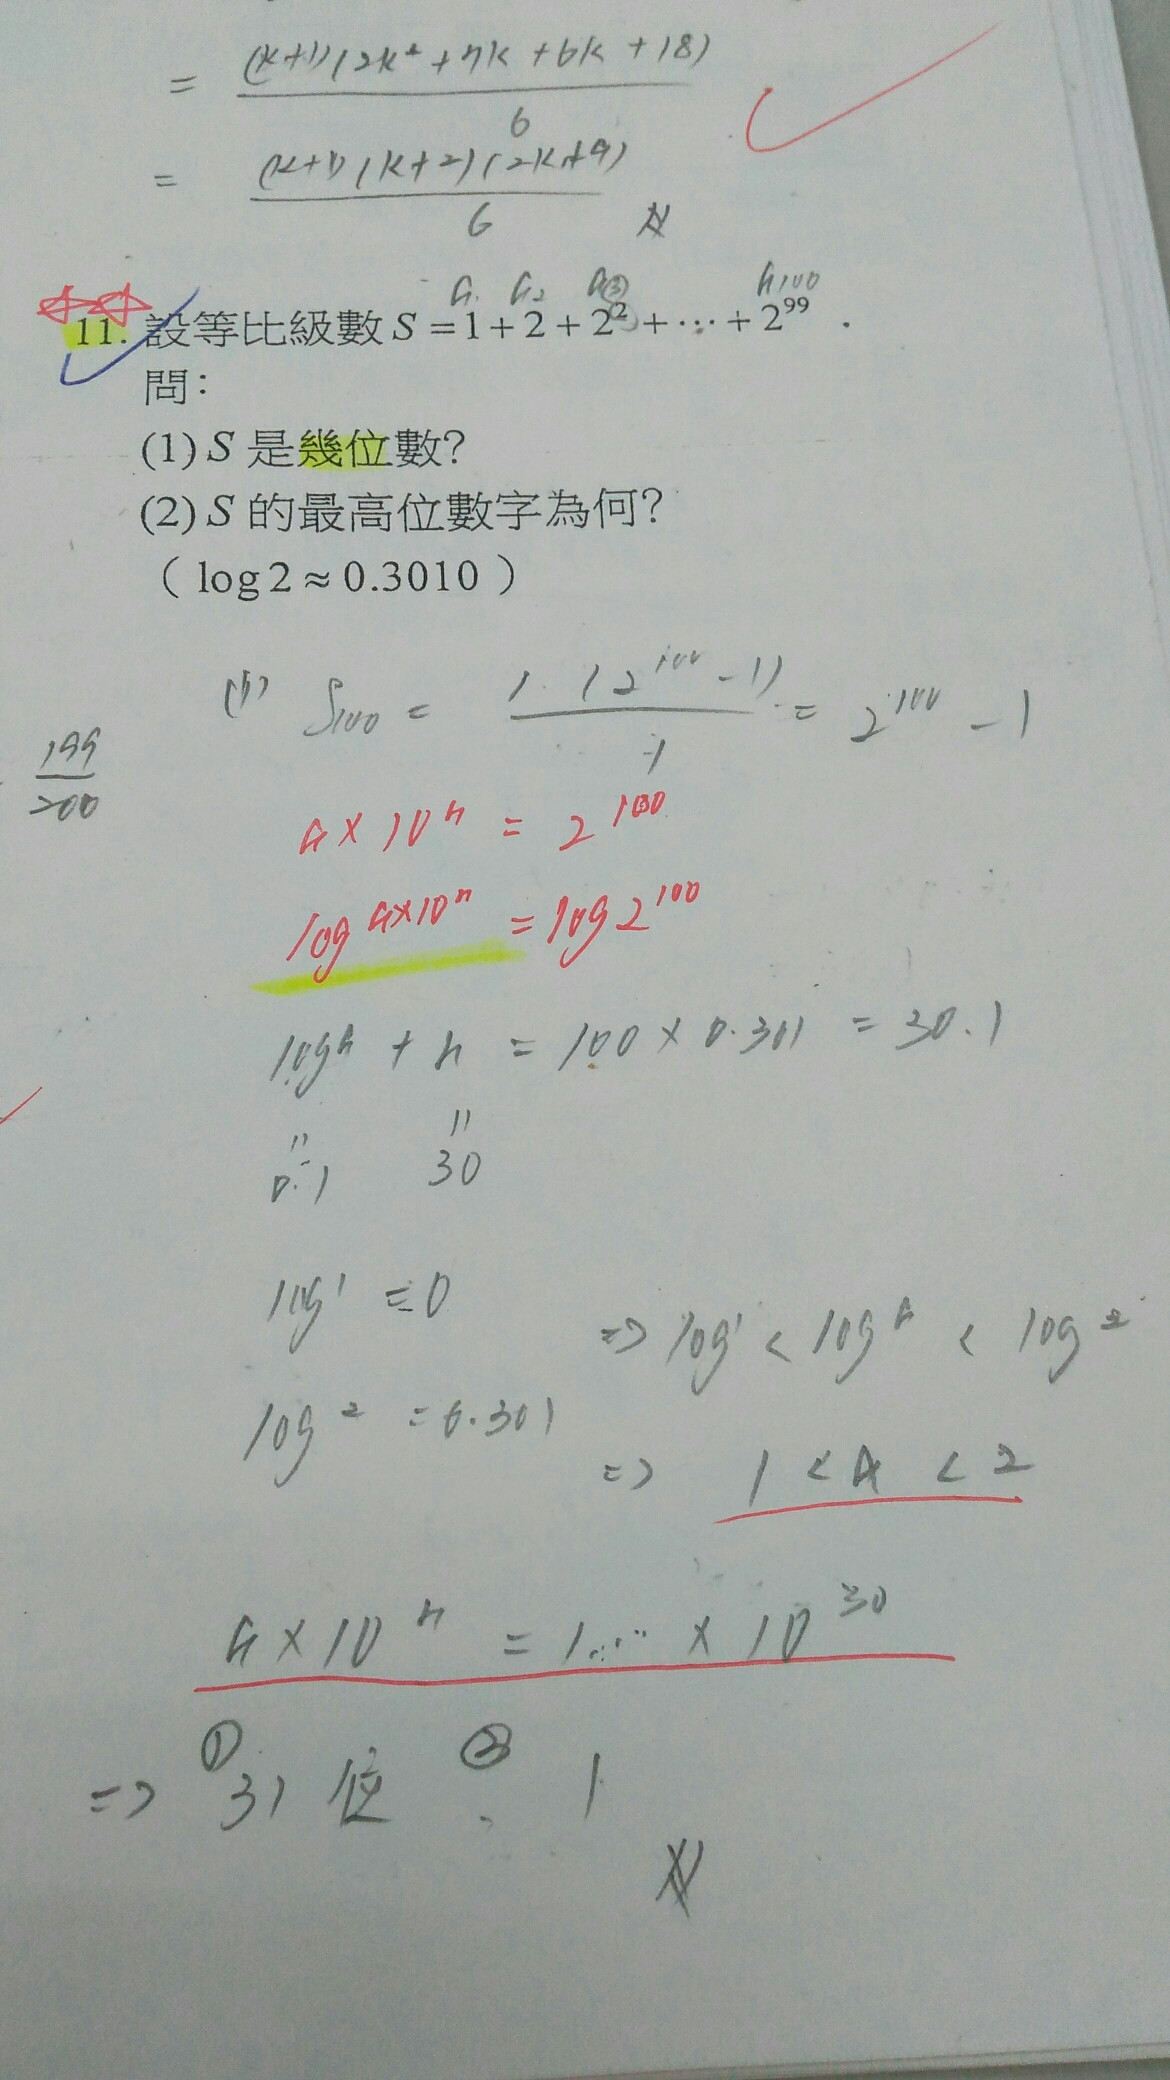 = (k+1)(2k²+7k+6k+18) / 6
= (k+1)(k+2)(2k+9) / 6
a₁ a₂ a③ a₁₀₀
11. 設等比級數 S = 1 + 2 + 2² + ⋯ + 2⁹⁹ .
問:
(1) S 是幾位數?
(2) S 的最高位數字為何?
( log 2 ≈ 0.3010 )
(1) S₁₀₀ = 1·(2¹⁰⁰-1) / 1 = 2¹⁰⁰ - 1
199/200
a×10ⁿ = 2¹⁰⁰
log a×10ⁿ = log 2¹⁰⁰
log a + n = 100 × 0.301 = 30.1
" "
0.1 30
log 1 = 0
⇒ log 1 < log a < log 2
log 2 = 0.301
⇒ 1 < a < 2
a×10ⁿ = 1.... × 10³⁰
① ②
⇒ 31 位 、 1